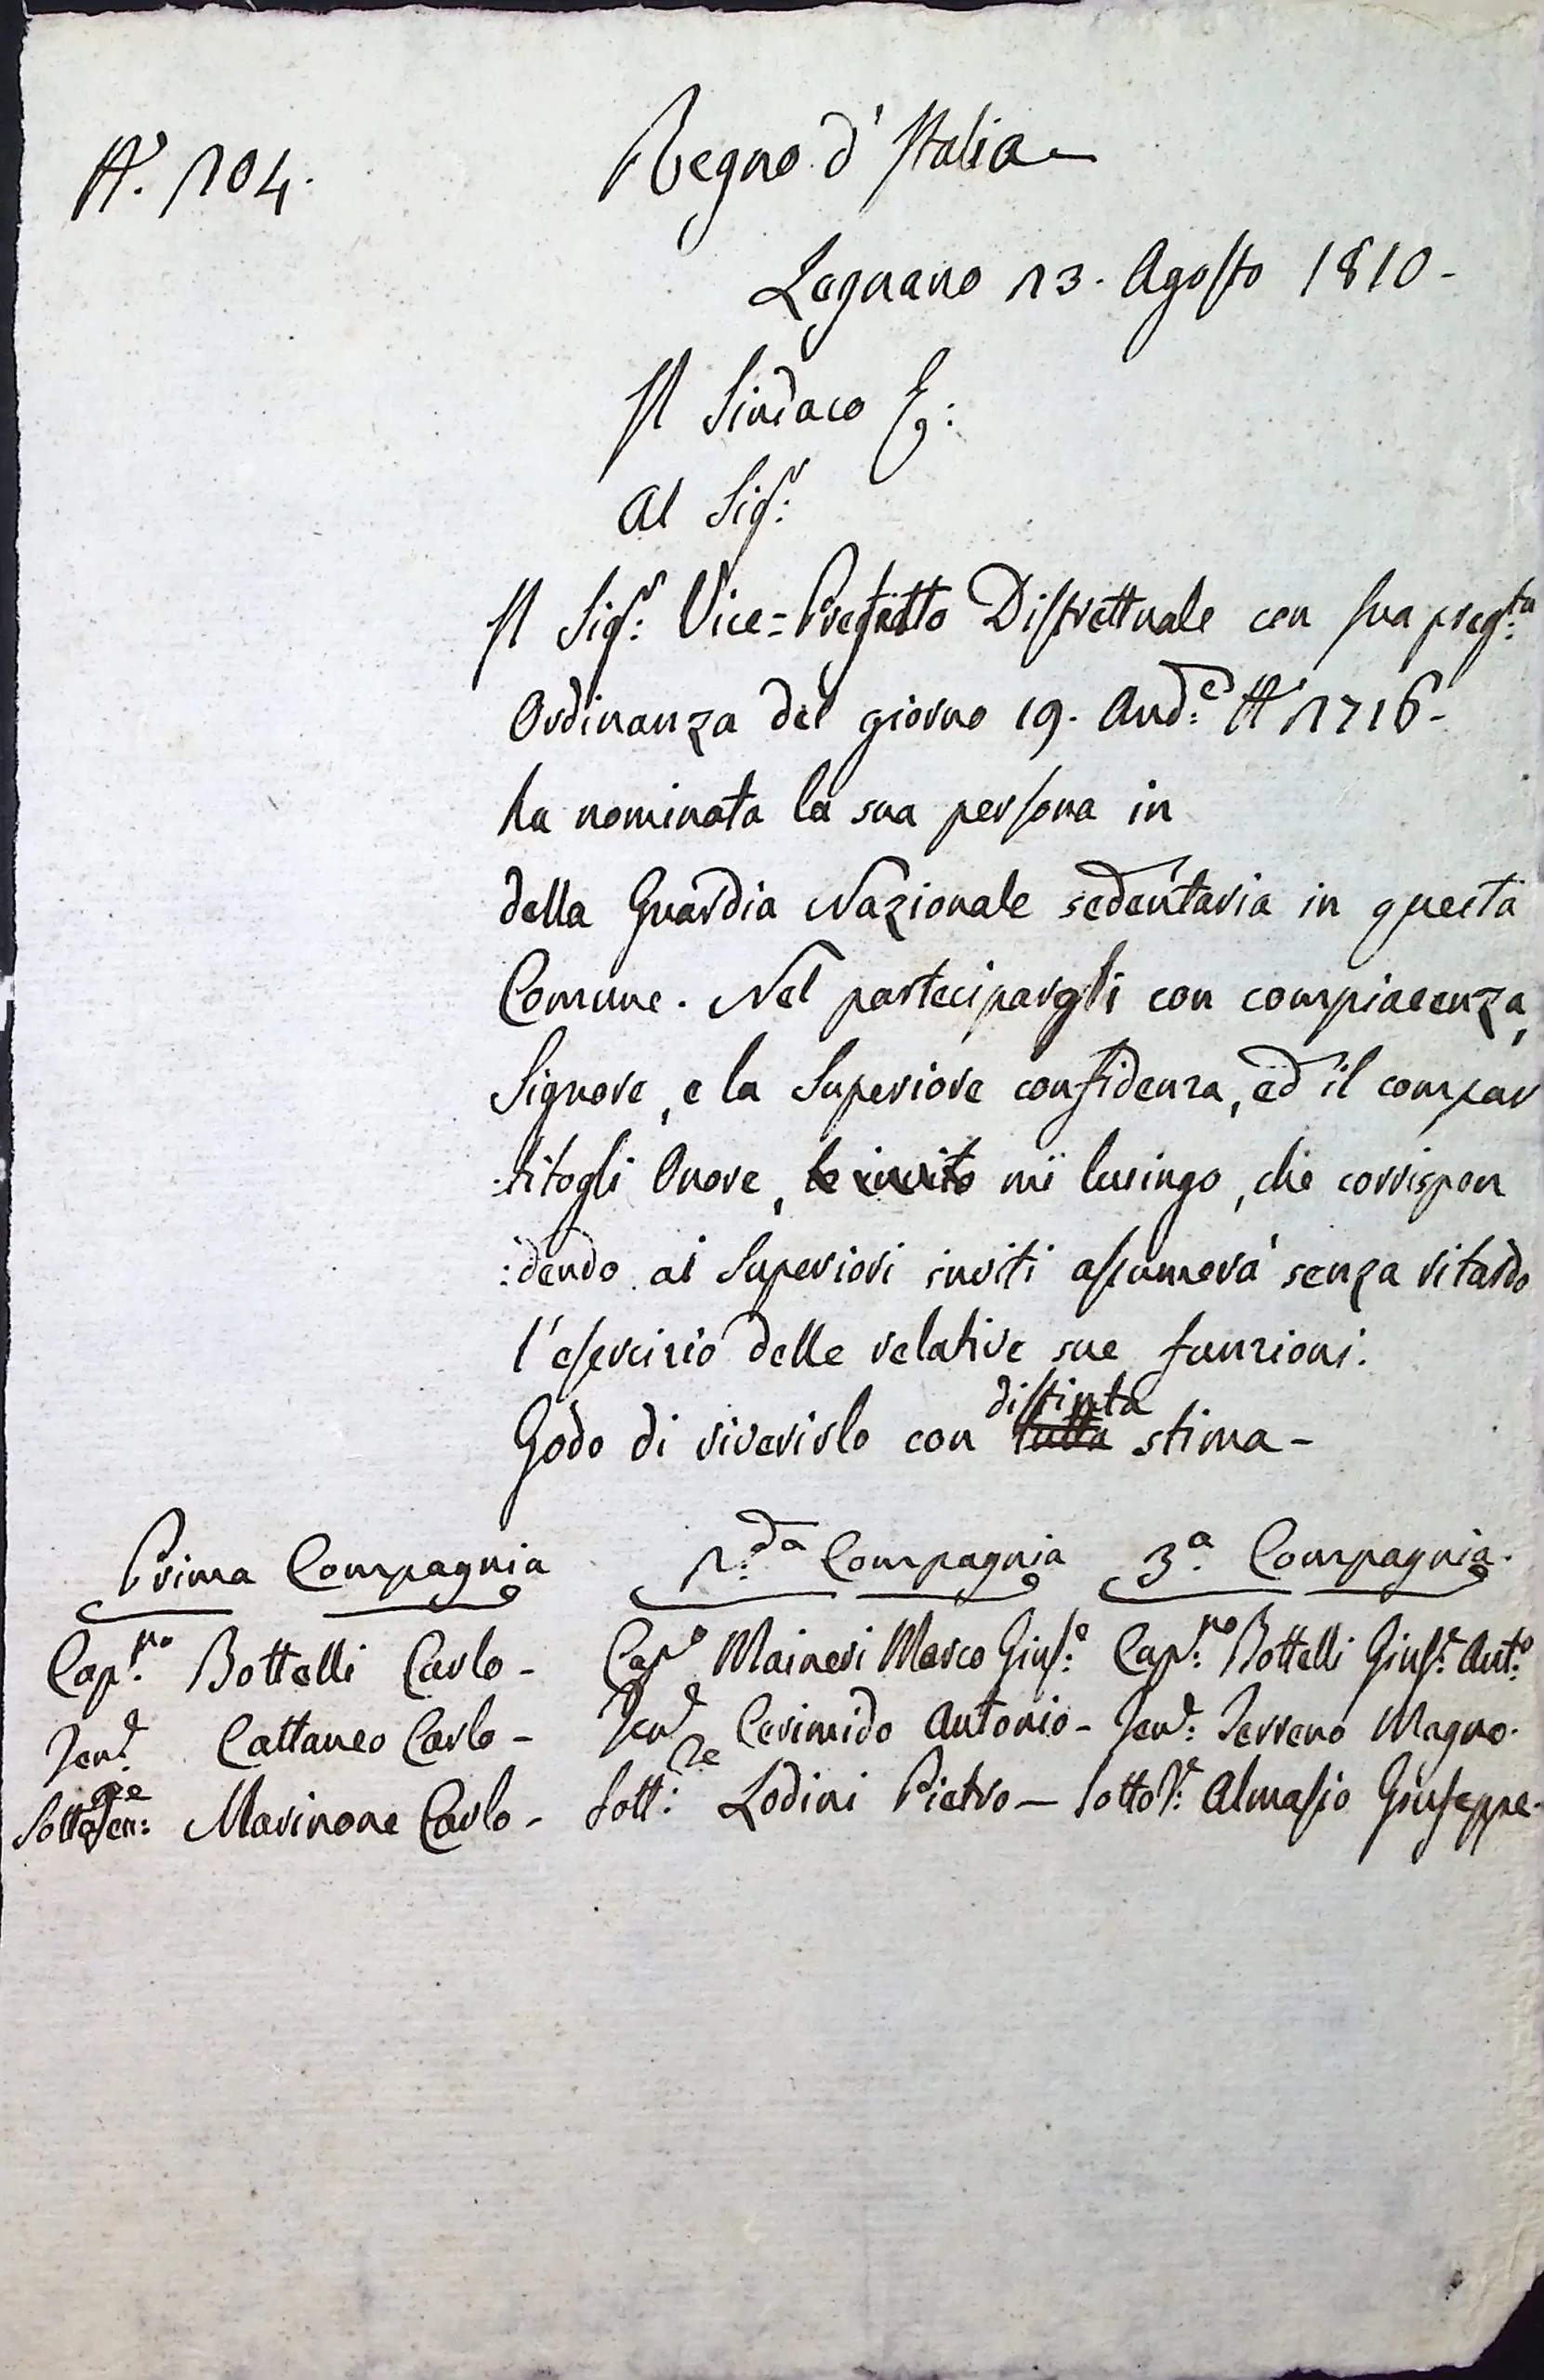 N.° 104.
Regno d'Italia
Legnano 13. Agosto 1810 -
Il Sindaco
Al Sig.r:
Il Sig.r: Vice=Prefetto Distrettuale con sua preg.ta:
Ordinanza del giorno 19. And.e: N.° 1716 -
ha nominata la sua persona in
della Guardia Nazionale sedentaria in questa
Comune. Nel partecipargli con compiacenza,
Signore, e la Superiore confidenza, ed il compar
:titogli Onore, le invito mi lusingo, che corrispon
:dendo ai Superiori inviti assumerà senza ritardo
l'esercizio delle relative sue funzioni.
Godo di riverirlo con tutta distinta stima -
Prima Compagnia
Cap.no: Bottelli Carlo -
Ten.e: Cattaneo Carlo -
SottoTen.e: Marinone Carlo -
2.da Compagnia
Cap.o Maineri Marco Gius.e:
Ten.e Cerimido Antonio -
Sott.: Lodini Pietro -
3.a Compagnia.
Cap.no: Bottelli Gius.e: Ant.o:
Ten.e: Terreno Magno.
SottoT.e: Almasio Giuseppe.